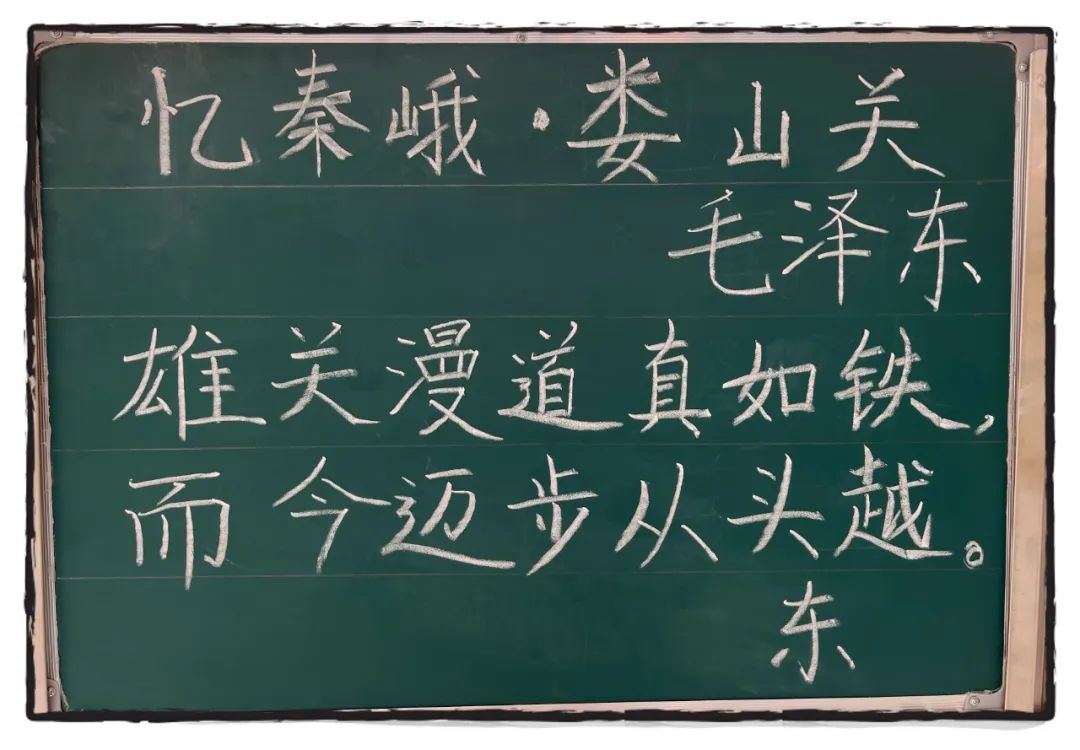 忆秦峨·娄山关
毛泽东
雄关漫道真如铁，
而今迈步从头越。
东